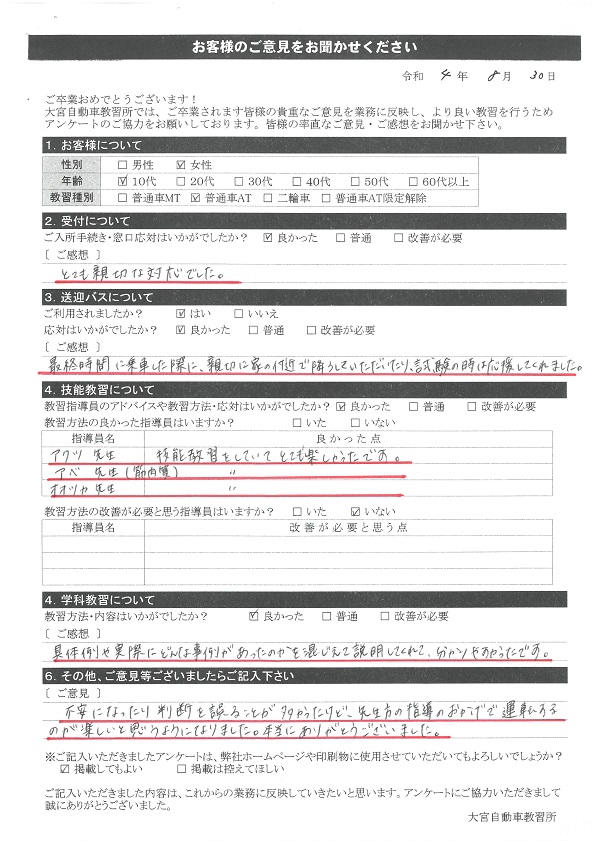 お客様のご意見をお聞かせください
令和 4 年 8 月 30 日
ご卒業おめでとうございます！
大宮自動車教習所では、ご卒業されます皆様の貴重なご意見を業務に反映し、より良い教習を行うため
アンケートのご協力をお願いしております。皆様の率直なご意見・ご感想をお聞かせ下さい。
1. お客様について
性別 □ 男性 ☑ 女性
年齢 ☑ 10代 □ 20代 □ 30代 □ 40代 □ 50代 □ 60代以上
教習種別 □ 普通車MT ☑ 普通車AT □ 二輪車 □ 普通車AT限定解除
2. 受付について
ご入所手続き・窓口応対はいかがでしたか？ ☑ 良かった □ 普通 □ 改善が必要
[ ご感想 ]
とても親切な対応でした。
3. 送迎バスについて
ご利用されましたか？ ☑ はい □ いいえ
応対はいかがでしたか？ ☑ 良かった □ 普通 □ 改善が必要
[ ご感想 ]
最終時間に乗車した際に、親切に家の付近で降ろしていただいたり、試験の時は応援してくれました。
4. 技能教習について
教習指導員のアドバイスや教習方法・応対はいかがでしたか？ ☑ 良かった □ 普通 □ 改善が必要
教習方法の良かった指導員はいますか？ □ いた □ いない
指導員名 良かった点
アクツ 先生 技能教習をしていてとても楽しかったです。
アベ 先生(筋肉質) 〃
オオツカ 先生 〃
教習方法の改善が必要と思う指導員はいますか？ □ いた ☑ いない
指導員名 改善が必要と思う点
4. 学科教習について
教習方法・内容はいかがでしたか？ ☑ 良かった □ 普通 □ 改善が必要
[ ご感想 ]
具体例や実際にどんな事例があったのかを混じえて説明してくれて、分かりやすかったです。
6. その他、ご意見等ございましたらご記入下さい
[ ご意見 ]
不安になったり判断を誤ることが多かったけど、先生方の指導のおかげで運転する
のが楽しいと思うようになりました。本当にありがとうございました。
※ご記入いただきましたアンケートは、弊社ホームページや印刷物に使用させていただいてもよろしいでしょうか？
☑ 掲載してもよい □ 掲載は控えてほしい
ご記入いただきました内容は、これからの業務に反映していきたいと思います。アンケートにご協力いただきまして
誠にありがとうございました。
大宮自動車教習所